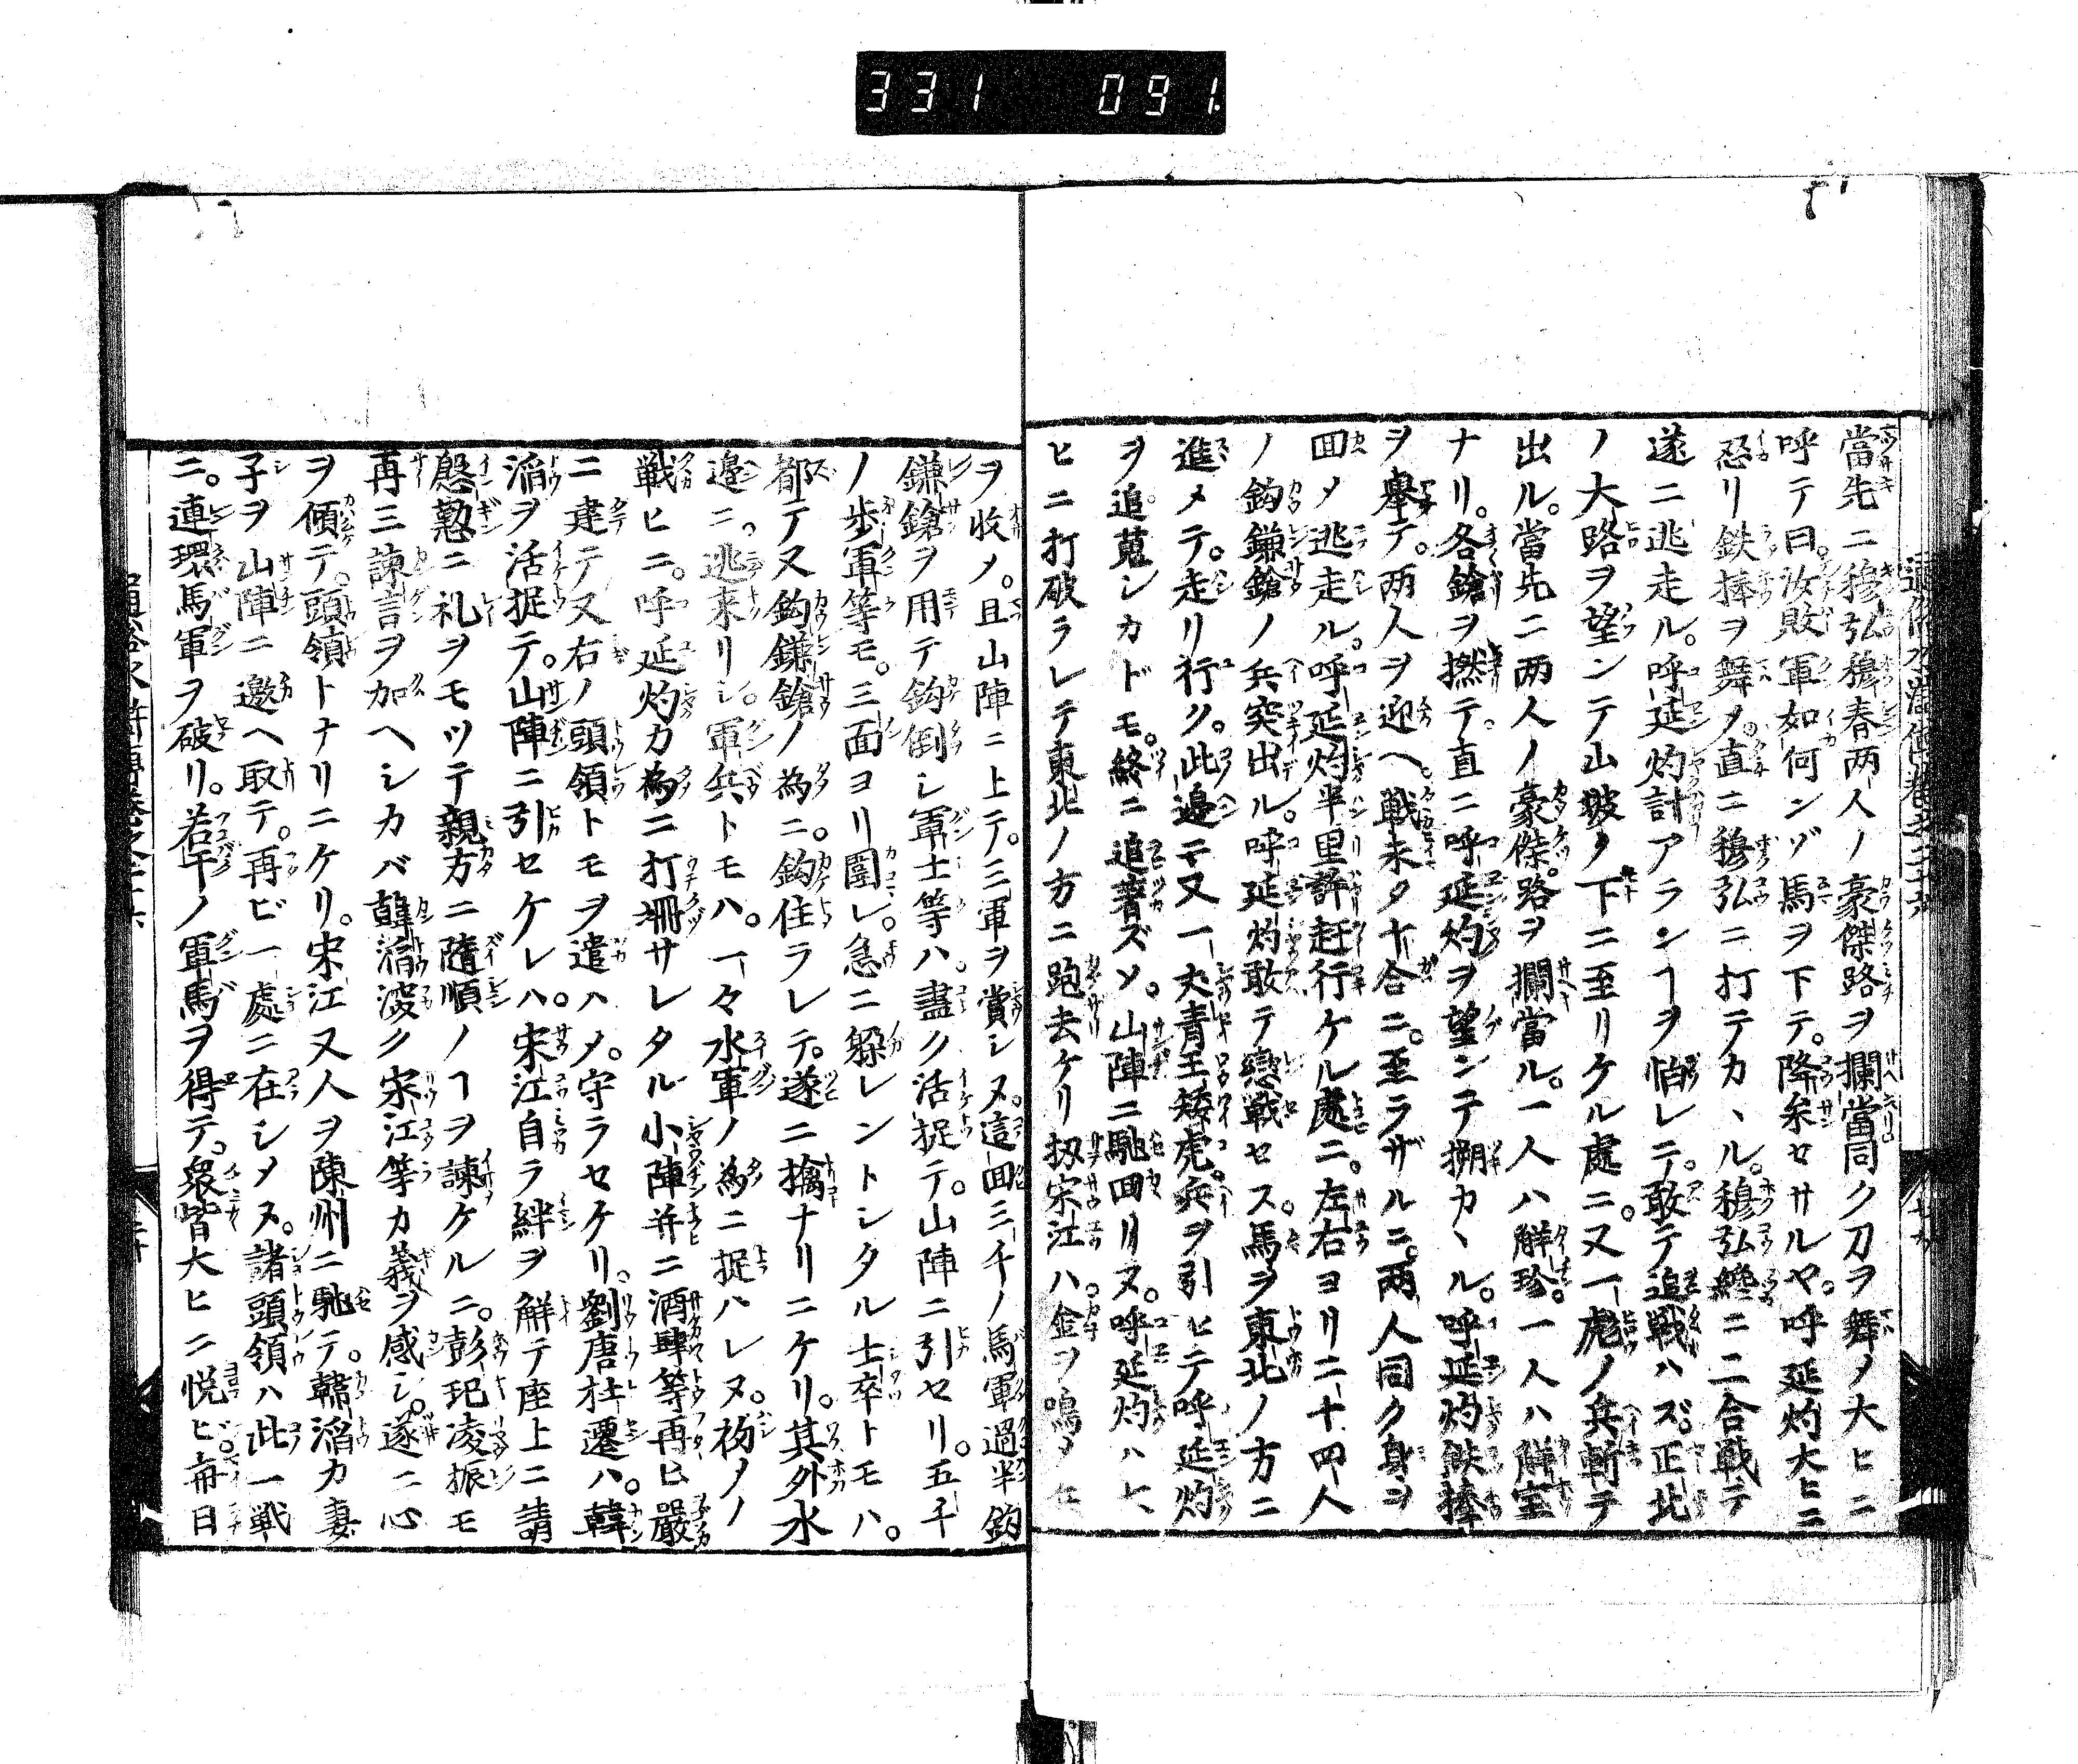 331 091.
當先ニ穆弘穆春両人ノ豪傑路ヲ攔當同ク刀ヲ舞メ大ヒニ
呼テ曰。汝敗軍如何ンゾ馬ヲ下テ。降矣セサルヤ。呼延灼大ヒニ
忍リ鉄捧ヲ舞メ。直ニ穆弘ニ打テカヽル。穆弘纔ニ二合戦テ
遂ニ逃走ル。呼延灼計アランヿヲ怕レテ。敢テ追戦ハズ。正北
ノ大路ヲ望ンテ山坡ノ下ニ至リケル處ニ。又一彪ノ兵斬テ
出ル。當先ニ両人ノ豪傑。路ヲ攔當ル。一人ハ解珍。一人ハ解宝
ナリ。各鎗ヲ撚テ。直ニ呼延灼ヲ望ンテ搠カヽル。呼延灼鉄捧
ヲ舉テ。両人ヲ迎ヘ。戦未タ十合ニ。至ラザルニ。両人同ク身ヲ
回メ逃走ル。呼延灼半里許赶行ケル處ニ。左右ヨリ二十四人
ノ鈎鎌鎗ノ兵突出ル。呼延灼敢テ戀戦セス。馬ヲ東北ノ方ニ
進メテ。走リ行ク。此邊ニ又一丈青王矮虎。兵ヲ引ヒテ呼延灼
ヲ追蒐シカドモ。終ニ追著ズソ。山陣ニ馳回リヌ。呼延灼ハ大
ヒニ打破ラレテ東北ノ方ニ跑去ケリ扨宋江ハ。金ヲ鳴メ
ヲ收メ。且山陣ニ上テ。三軍ヲ賞シヌ。這回三千ノ馬軍過半鈎
鎌鎗ヲ用テ鈎倒シ軍士等ハ。盡ク活捉テ。山陣ニ引セリ。五千
ノ歩軍等モ。三面ヨリ圍レ。急ニ躱レントシタル士卒トモハ。
都テ又鈎鎌鎗ノ為ニ。鈎住ラレテ。遂ニ擒ナリニケリ。其外水
邉ニ逃来リシ。軍兵トモハ。一々水軍ノ為ニ捉ハレヌ。初メノ
戦ヒニ。呼延灼カ為ニ打坍サレタル小陣并ニ酒肆等再ヒ嚴
ニ建テ又右ノ頭領トモヲ遣ハメ。守ラセケリ。劉唐杜遷ハ。韓
滔ヲ活捉テ。山陣ニ引セケレハ。宋江自ラ絆ヲ解テ座上ニ請
慇懃ニ礼ヲモツテ親方ニ隨順ノヿヲ諫ケルニ。彭玘凌振モ
再三諫言ヲ加ヘシカバ韓滔深ク宋江等カ義ヲ感シ。遂ニ心
ヲ傾テ。頭領トナリニケリ。宋江又人ヲ陳州ニ馳テ。韓滔カ妻
子ヲ山陣ニ邀ヘ取テ。再ビ一處ニ在シメヌ。諸頭領ハ此一戦
ニ。連環馬軍ヲ破リ。若干ノ軍馬ヲ得テ。衆皆大ヒニ悦ビ。毎日